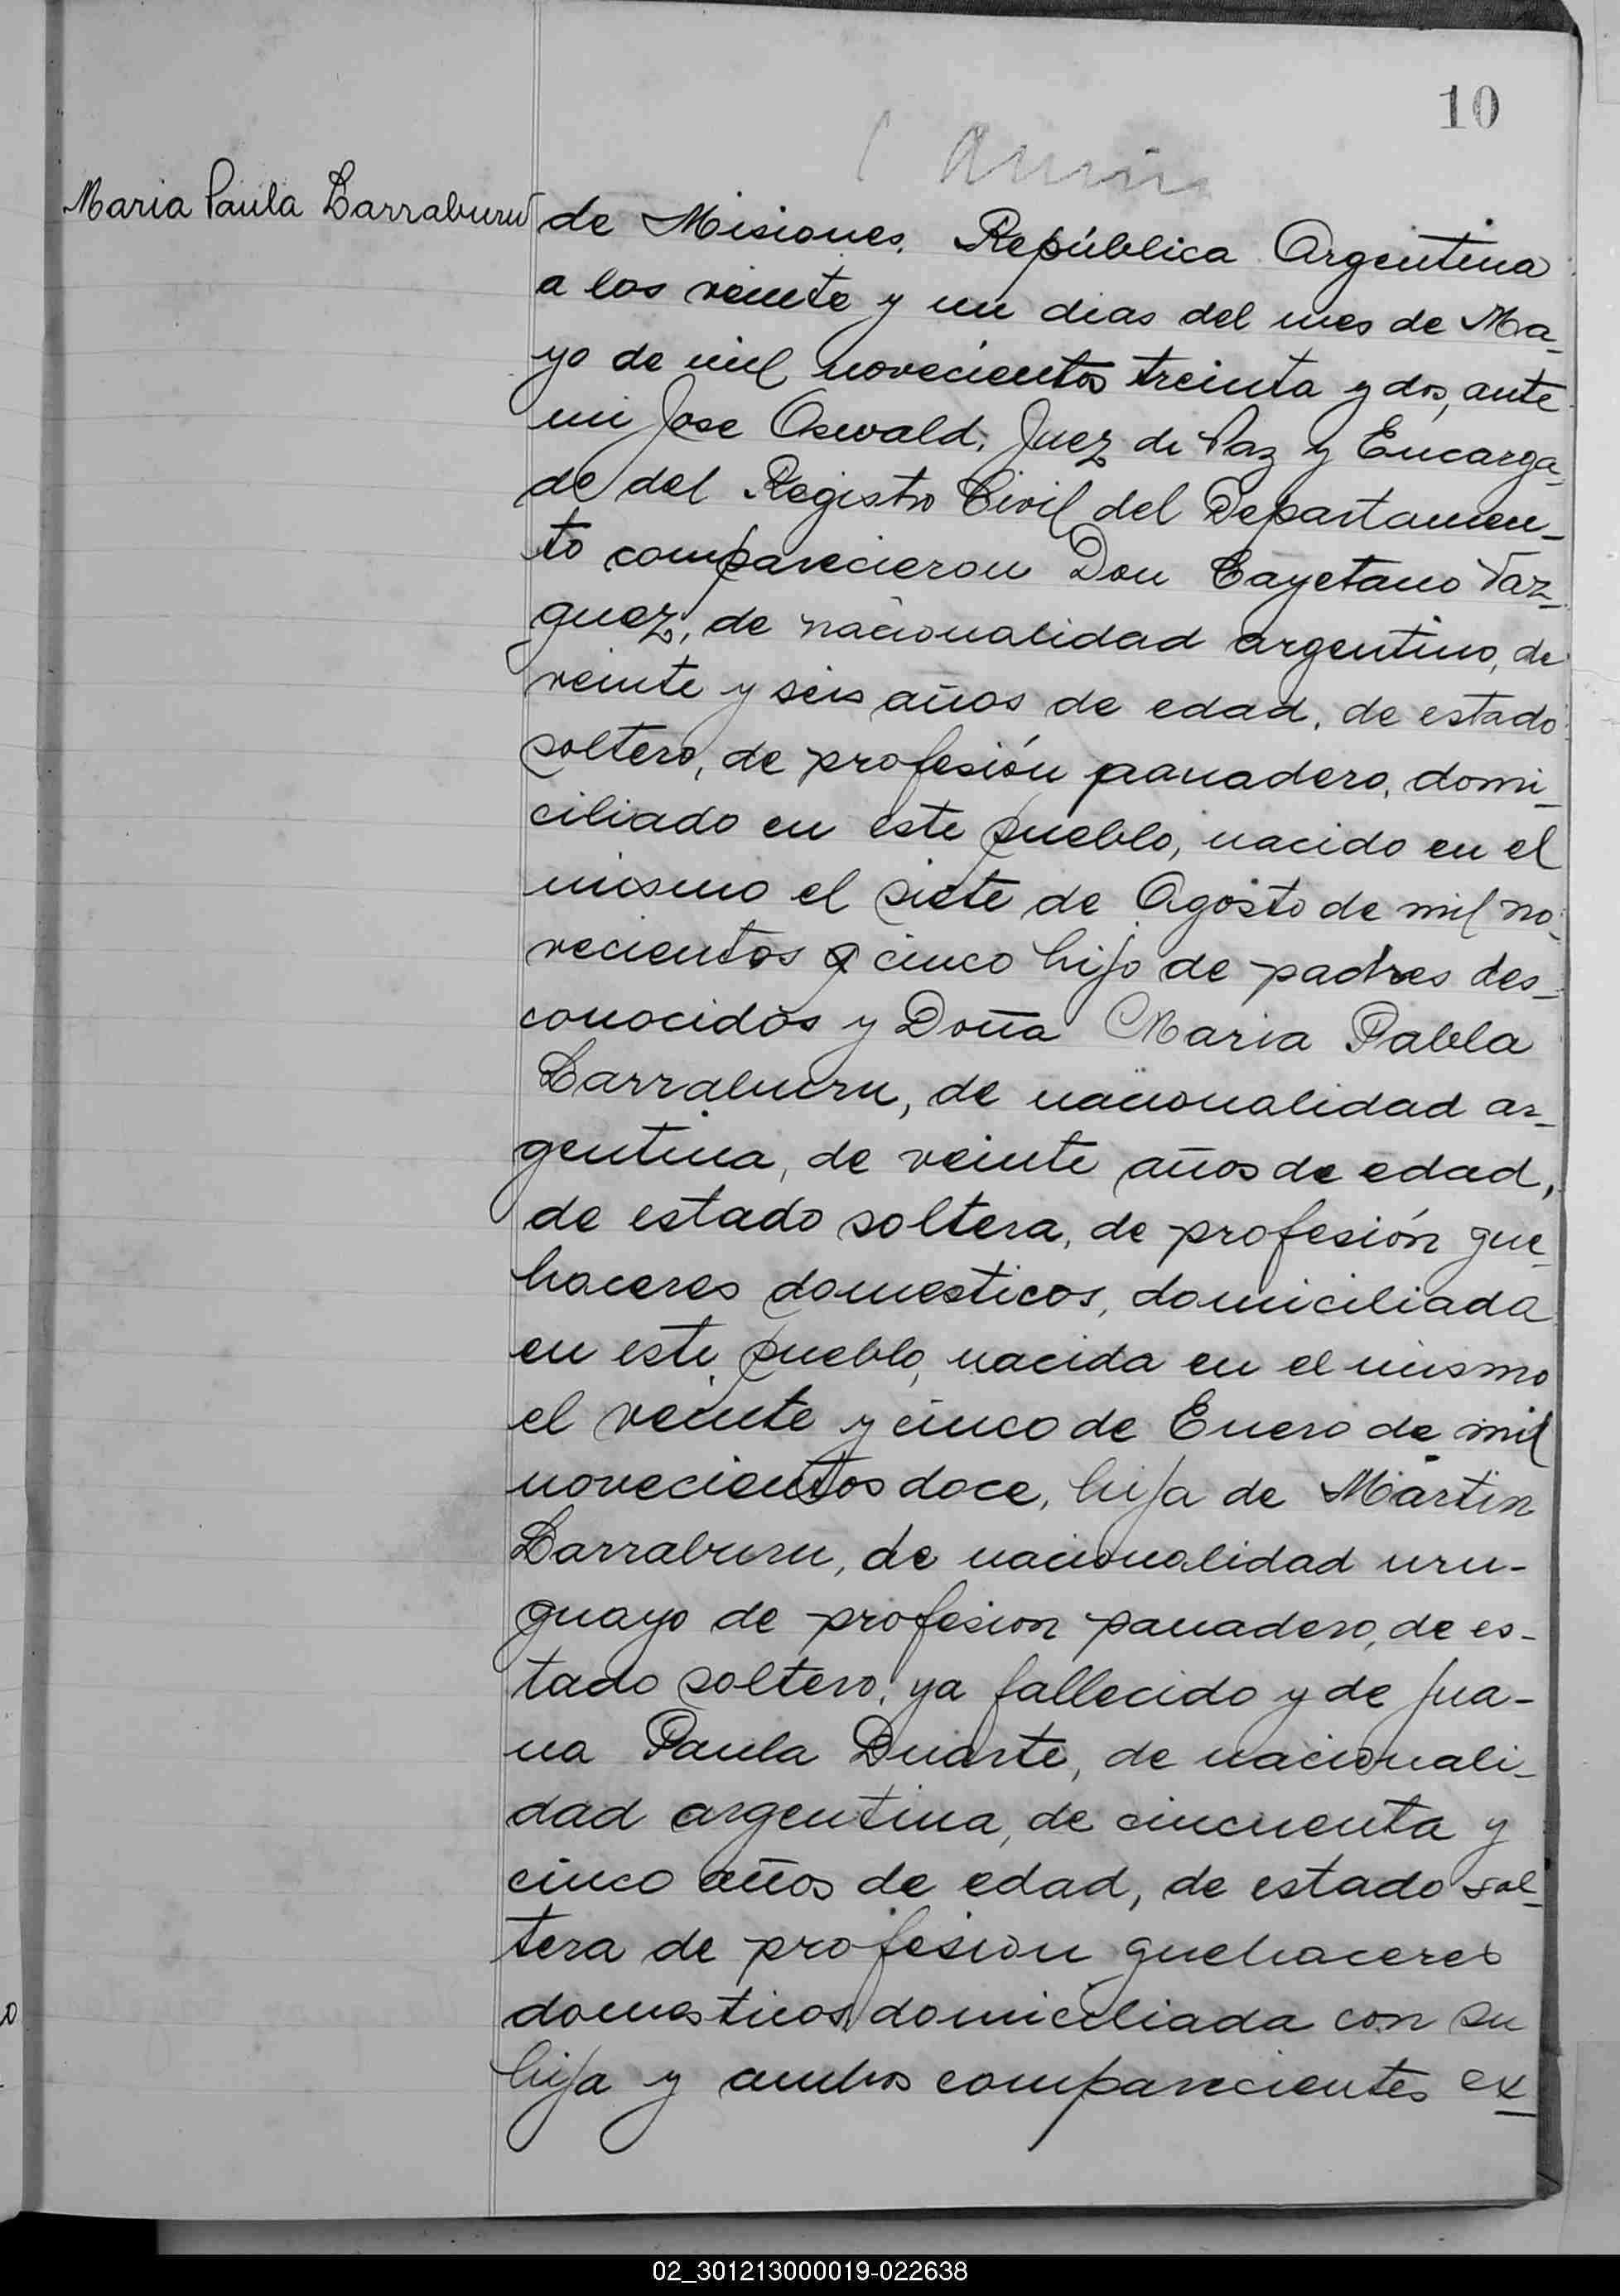 10
Maria Paula Larraburu
de Misiones, República Argentina
a los veinte y un dias del mes de Ma-
yo de mil novecientos treinta y dos, ante
mi Jose Oswald, Juez de Paz y Encarga-
do del Registro Civil del Departamen-
to comparecieron Don Cayetano Vaz-
quez, de nacionalidad argentino, de
veinte y seis años de edad, de estado
soltero, de profesión panadero, domi-
ciliado en este pueblo, nacido en el
mismo el siete de Agosto de mil no-
vecientos cinco hijo de padres des-
conocidos y Doña Maria Pabla
Larraburu, de nacionalidad ar-
gentina, de veinte años de edad,
de estado soltera, de profesión que-
haceres domesticos, domiciliada
en este pueblo, nacida en el mismo
el veinte y cinco de Enero de mil
novecientos doce, hija de Martin
Larraburu, de nacionalidad uru-
guayo de profesion panadero, de es-
tado soltero, ya fallecido y de Jua-
na Paula Duarte, de nacionali-
dad argentina, de cincuenta y
cinco años de edad, de estado sol-
tera de profesion quehaceres
domesticos domiciliada con su
hija y ambos comparecientes ex-
02_301213000019-022638